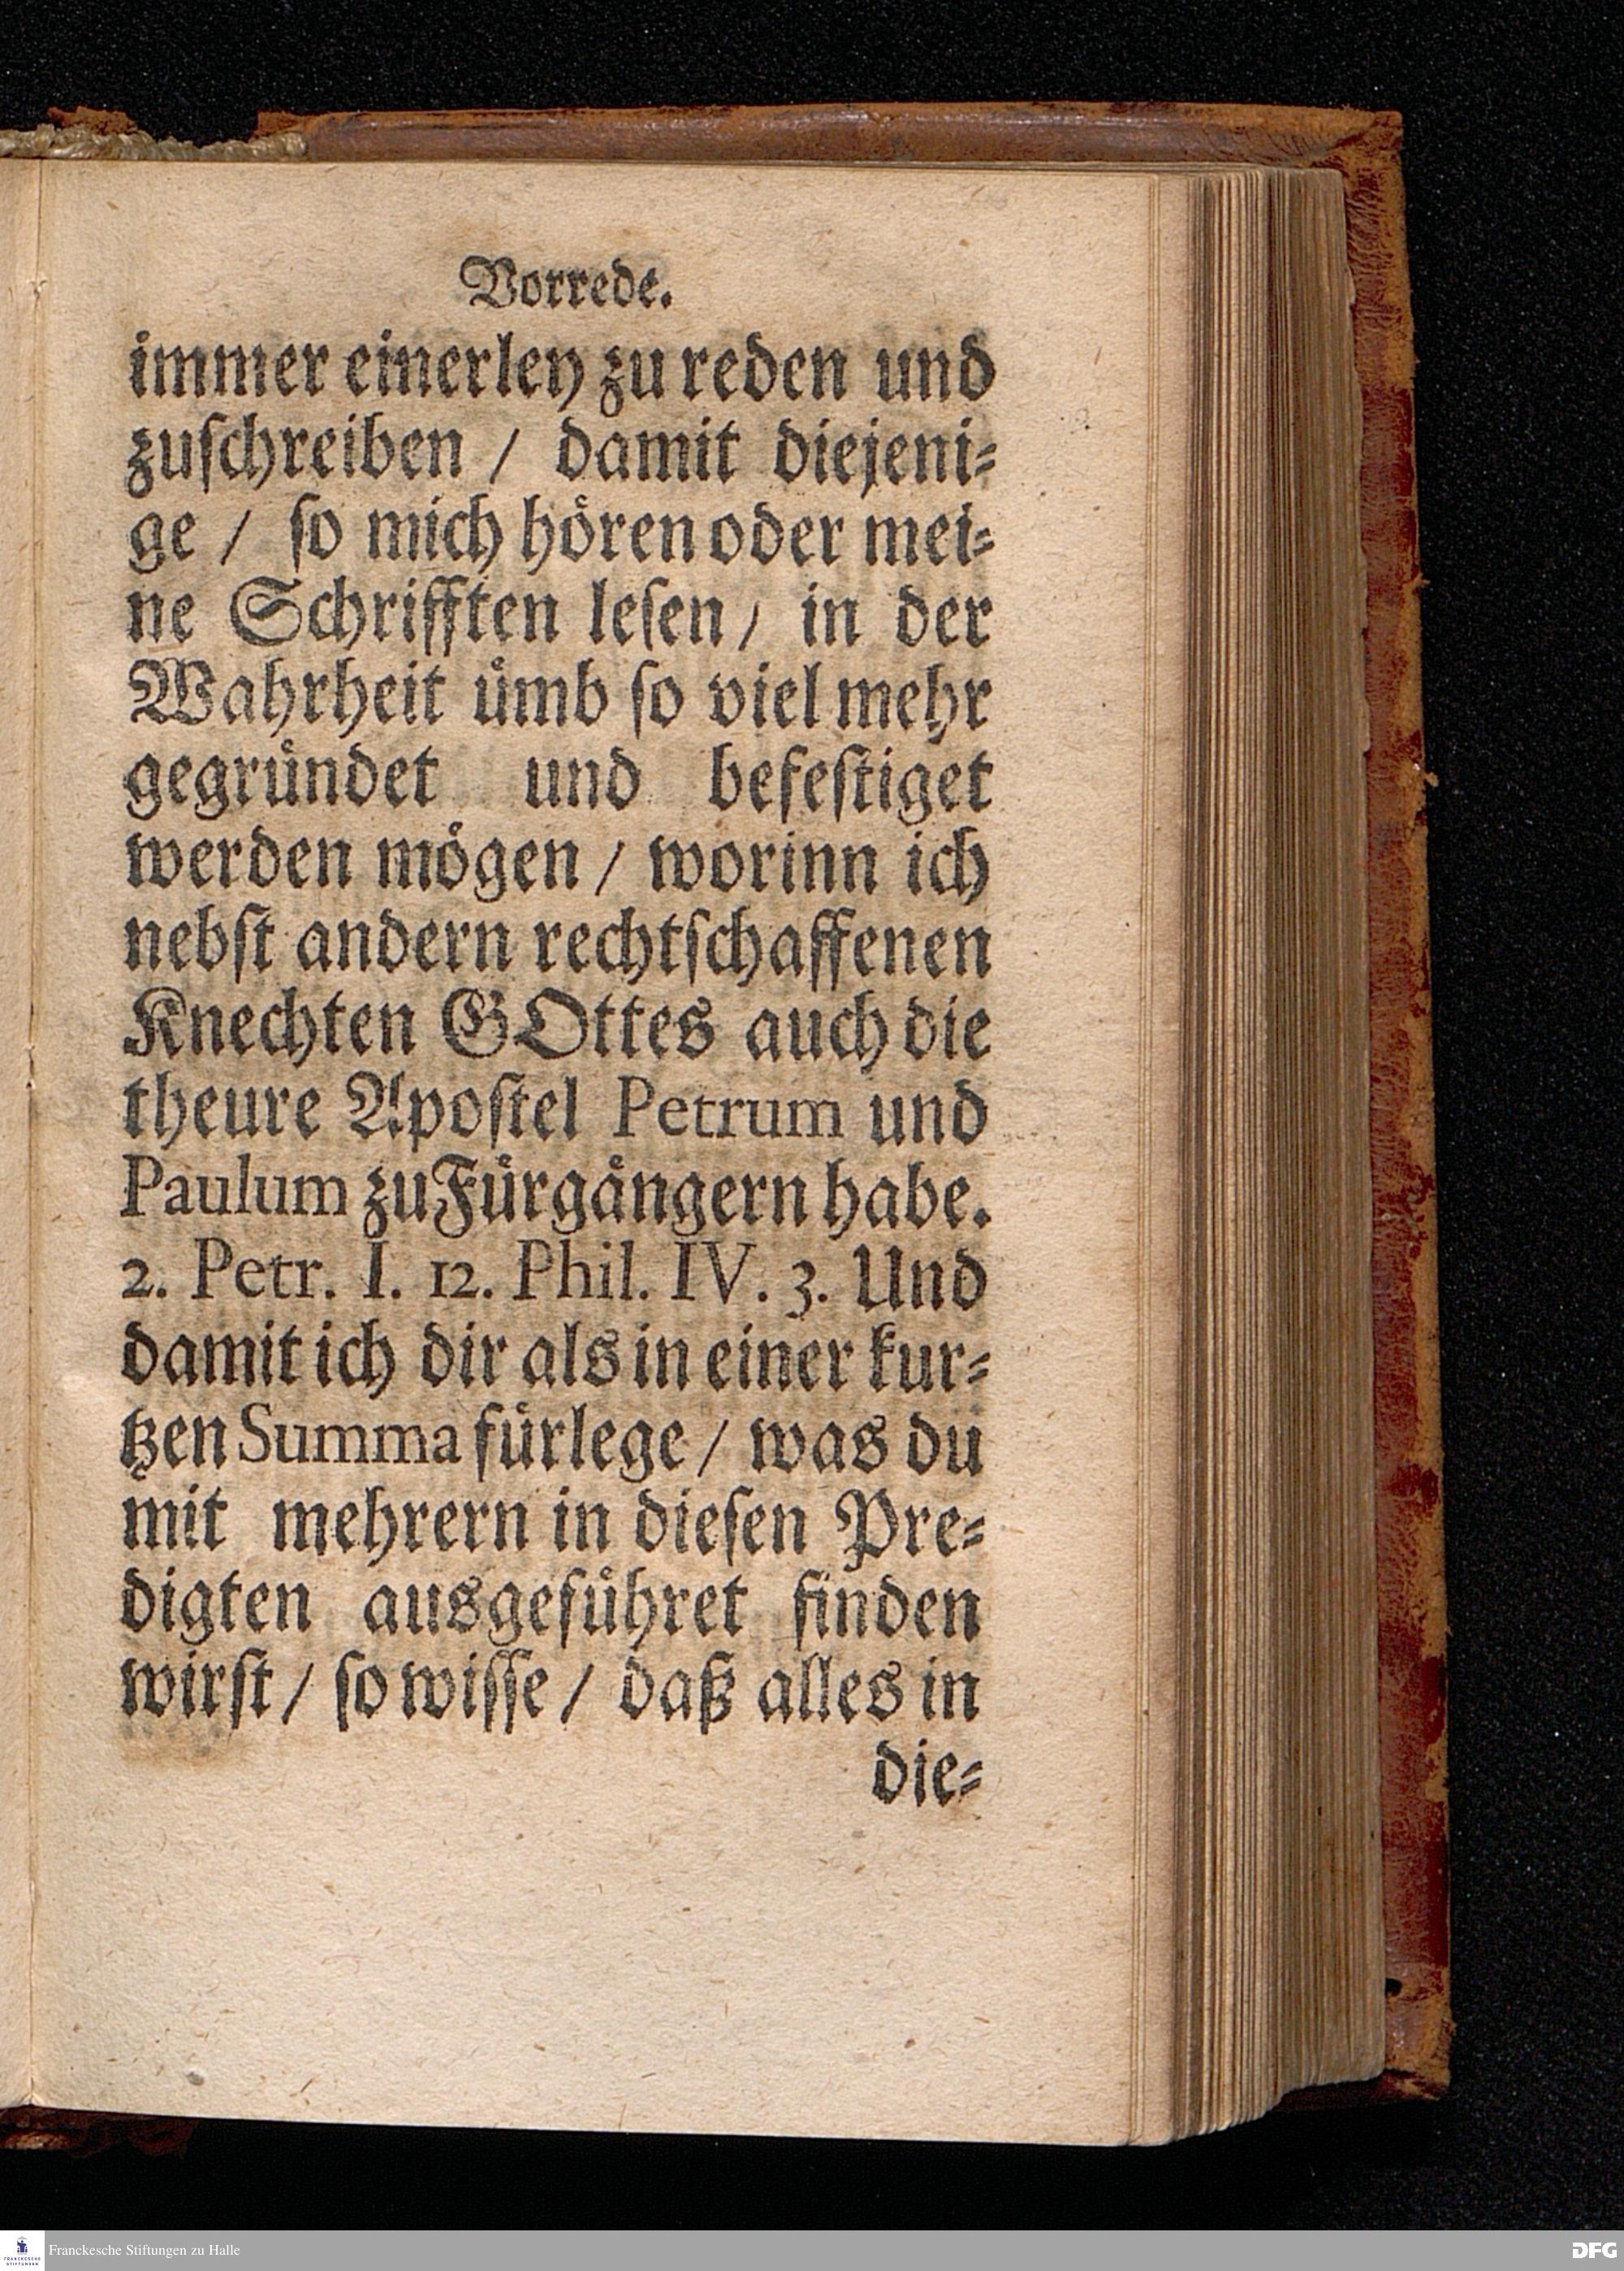 Vorrede.
immer einerley zu reden und
zuſchreiben / damit diejeni⸗
ge / ſo mich hoͤren oder mei⸗
ne Schrifften leſen / in der
Wahrheit uͤmb ſo viel mehr
gegruͤndet und befeſtiget
werden moͤgen / worinn ich
nebſt andern rechtſchaffenen
Knechten GOttes auch die
theure Apoſtel Petrum und
Paulum zu Fuͤrgaͤngern habe.
2. Petr. I. 12. Phil. IV. 3. Und
damit ich dir als in einer kur⸗
tzen Summa fuͤrlege / was du
mit mehrern in dieſen Pre⸗
digten ausgefuͤhret finden
wirſt / ſo wiſſe / daß alles in
die⸗
FRANCKESCHE
STIFTUNGEN
Franckesche Stiftungen zu Halle
DFG